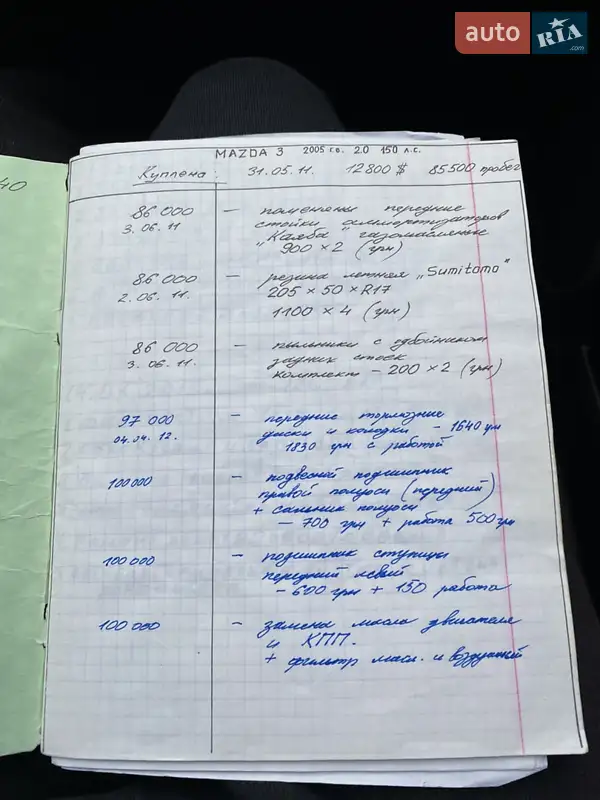 auto RIA .com
40
MAZDA 3 2005 г.в. 2.0 150 л.с.
Куплена: 31.05.11. 12800$ 85500 пробег
86 000 — поменяны передние
3.06.11 стойки аммортизаторов
"Каяба" газомасленые
900 × 2 (грн)
86 000 — резина летняя "Sumitomo"
2.06.11. 205 × 50 × R17
1100 × 4 (грн)
86 000 — пыльники с отбойником
3.06.11. задних стоек
комплект – 200 × 2 (грн)
97 000 – передние тормозные
04.04.12. диски и колодки – 1640 грн
1830 грн с работой
100 000 – подвесной подшипник
правой полуоси (передний)
+ сальник полуоси
– 700 грн + работа 500 грн
100 000 – подшипник ступицы
передний левый
– 600 грн + 150 работа
100 000 – замена масла двигателя
и КПП.
+ фильтр масл. и воздушный